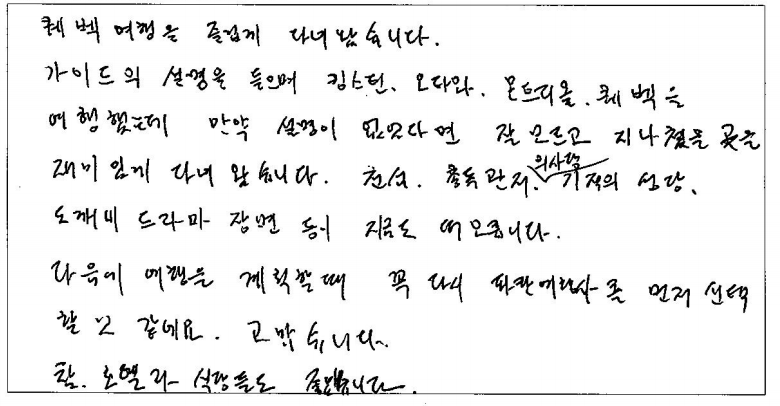 퀘벡 여행을 즐겁게 다녀 왔습니다.
가이드의 설명을 들으며 킹스턴, 오타와, 몬트리올, 퀘벡을
여행했는데 만약 설명이 없었다면 잘 모르고 지나쳤을 곳을
재미있게 다녀 왔습니다. 천섬, 총독관저, 의사당, 기적의 성당,
도깨비 드라마 장면 등이 지금도 떠오릅니다.
다음에 여행을 계획할때 꼭 다시 파란여행사를 먼저 선택
할 것 같네요. 고맙습니다.
참, 호텔과 식당들도 좋았습니다.